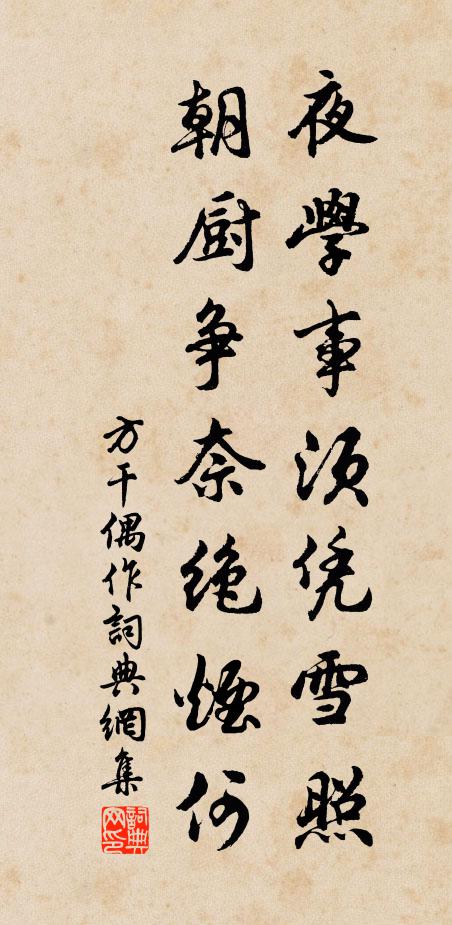 夜學事須凭雪照
朝厨争奈絶煙何
方干偶作詞典網集
詞典网印